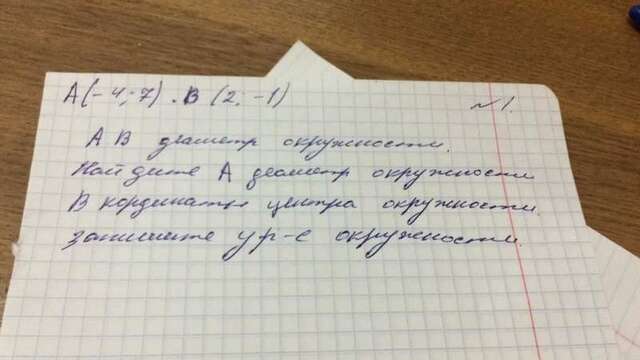 A(-4;7) . B (2; -1) №1.
AB диаметр окружности.
Найдите A диаметр окружности
B кординаты центра окружности.
запишите ур-е окружности.